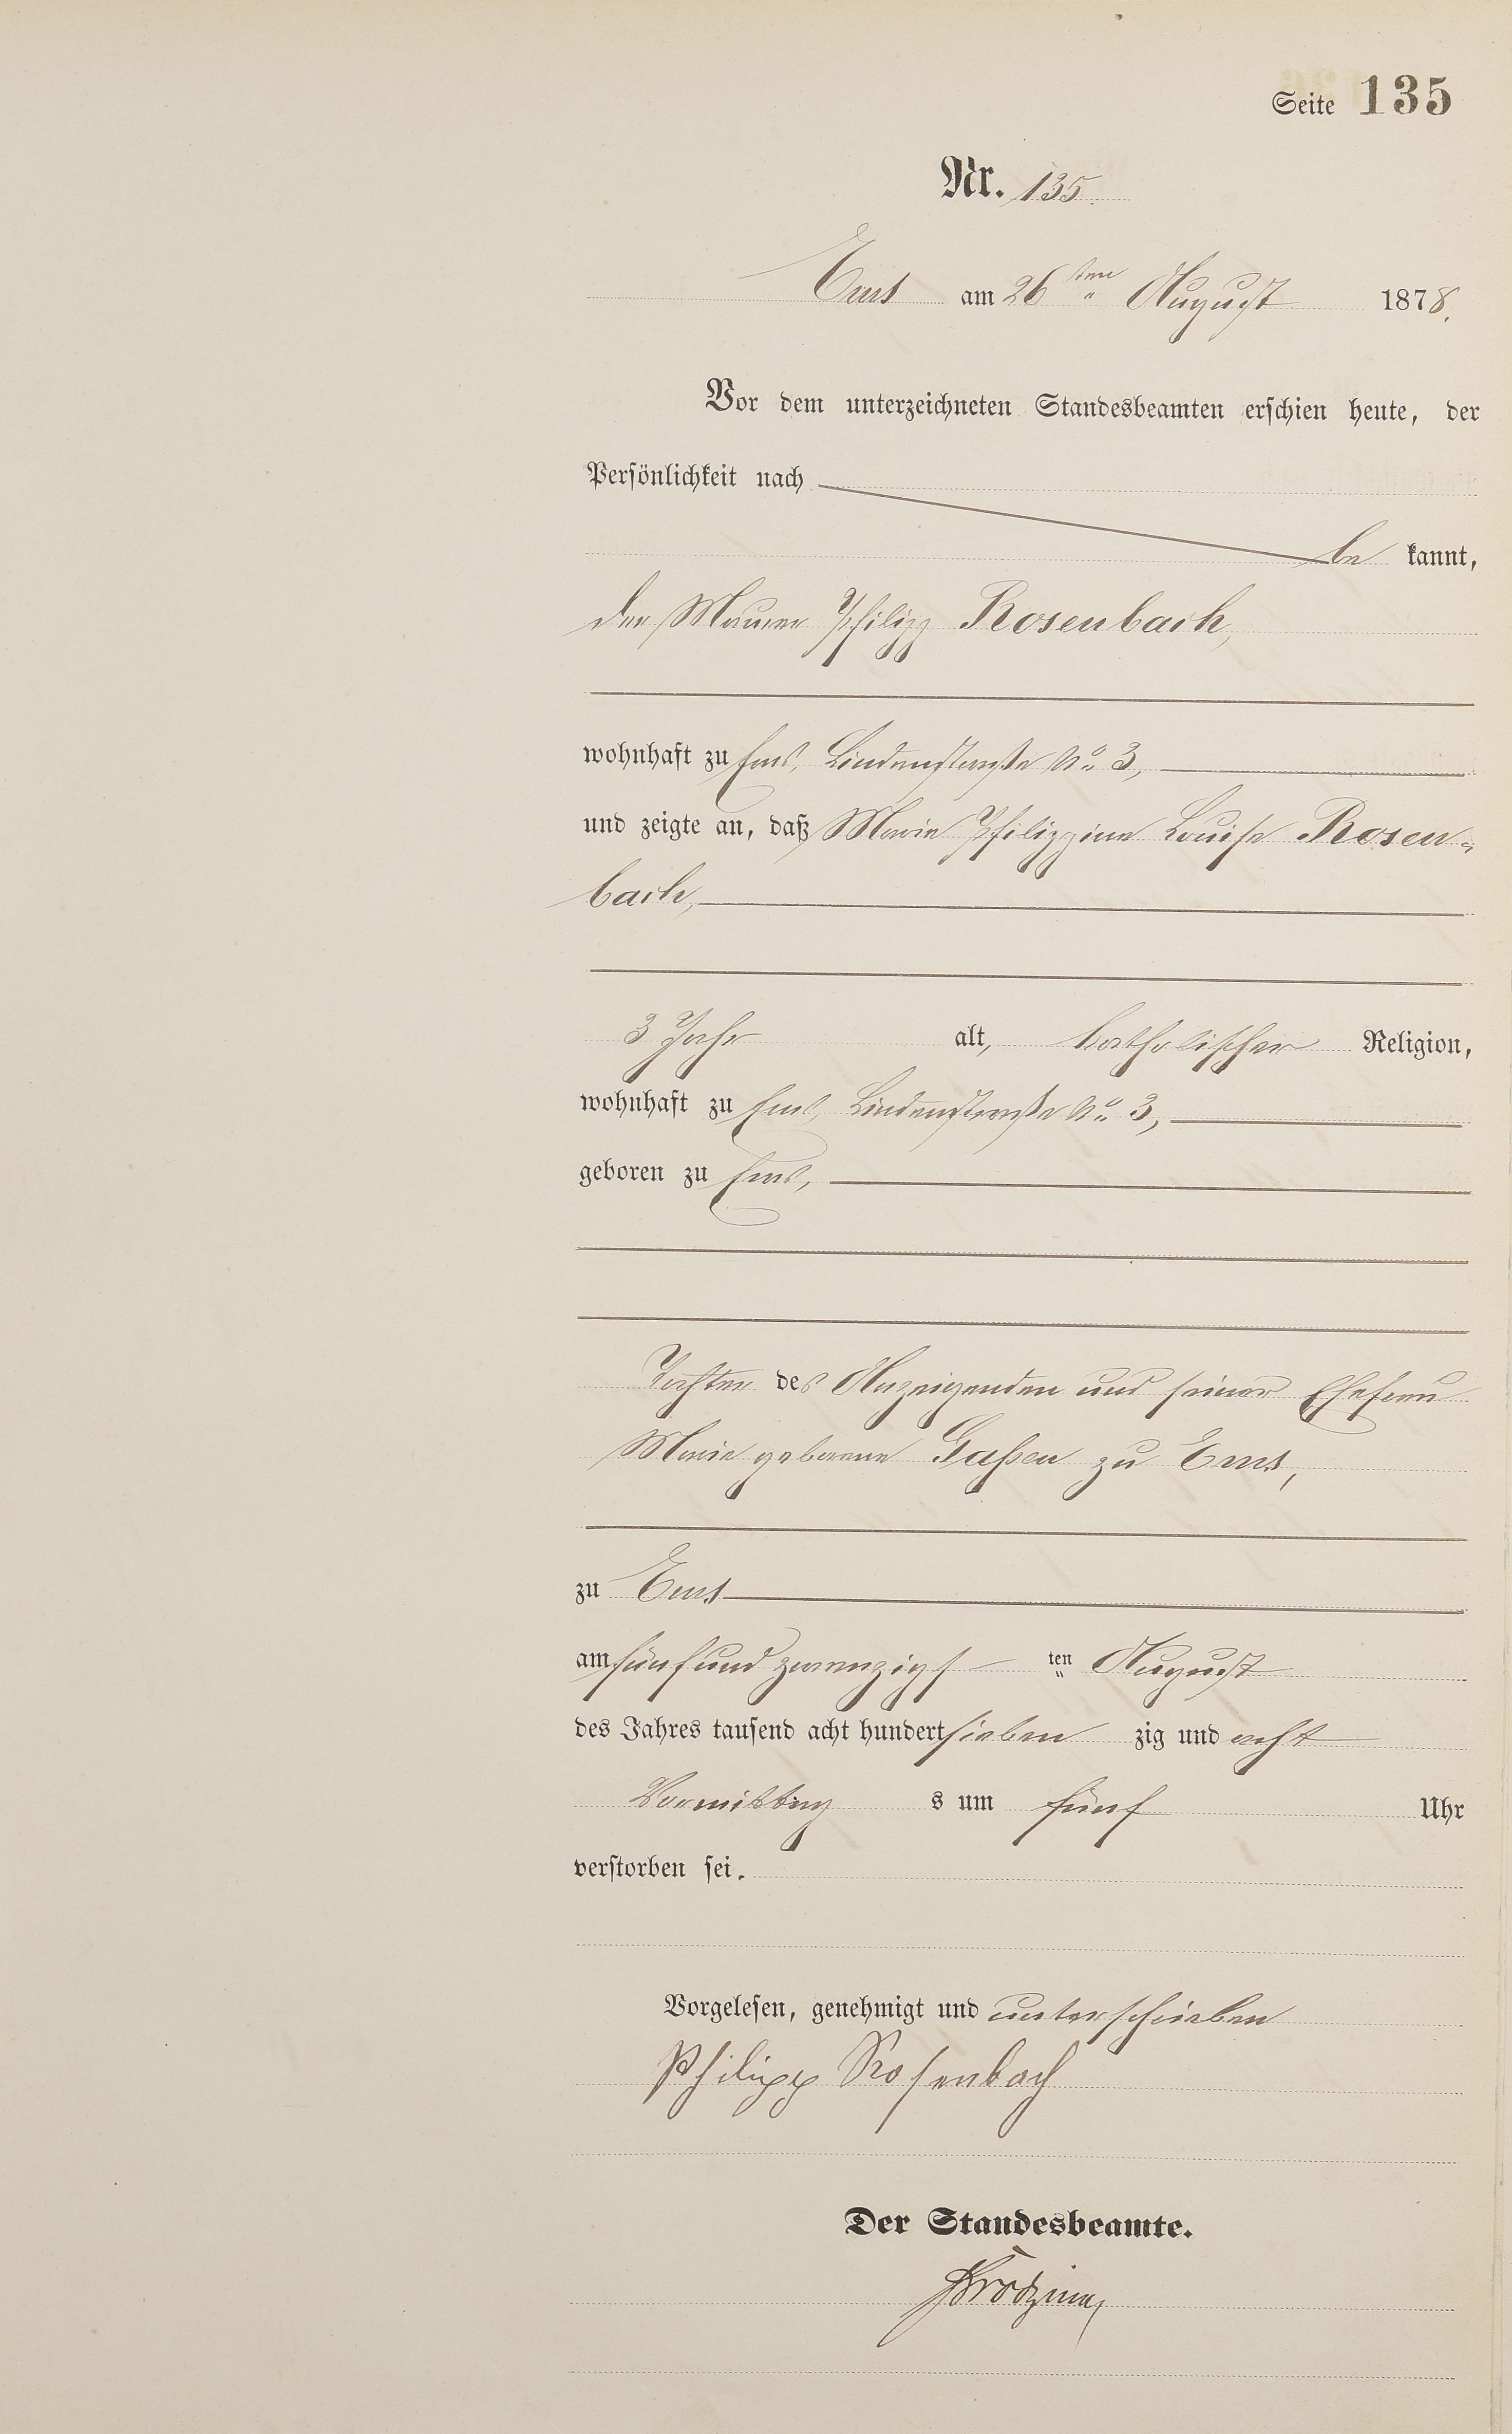 Seite 135
Nr. 135.
Ems am 26ten August 1878.
Vor dem unterzeichneten Standesbeamten erschien heute, der
Persönlichkeit nach
be kannt,
der Maurer Philipp Rosenbach,
wohnhaft zu Ems, Lindenstraße No. 3,
und zeigte an, daß Marie Philippine Louise Rosen-
bach,
3 Jahr alt, katholischer Religion,
wohnhaft zu Ems, Lindenstraße No. 3,
geboren zu Ems,
Tochter des Anzeigenden und seiner Ehefrau
Marie geborene Gaßen zu Ems,
zu Ems
am fünfundzwanzigs ten August
des Jahres tausend acht hundert sieben zig und acht
Vormittag s um fünf Uhr
verstorben sei.
Vorgelesen, genehmigt und unterschrieben
Philipp Rosenbach
Der Standesbeamte.